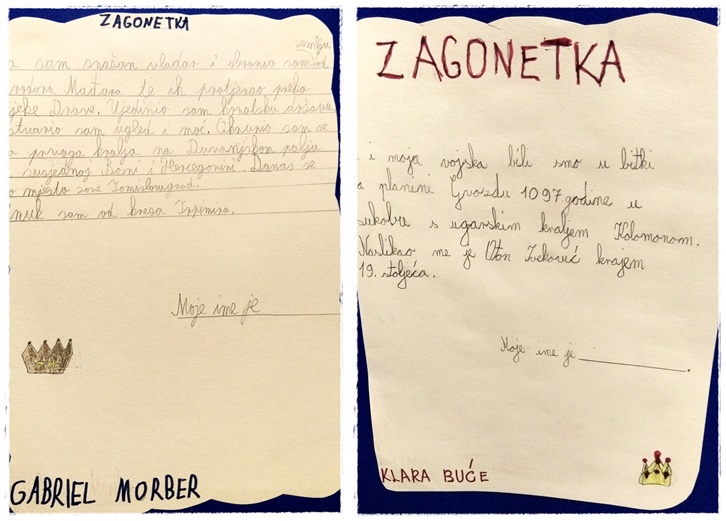 ZAGONETKA
zemlju
a sam snažan vladar i obranio sam od
Mađara te ih protjerao preko
Drave. Ujedinio sam hrvatsku državu
stvario sam ugled i moć. Okrunio sam se
a prvoga kralja na Duvanjskom polju
susjednoj Bosni i Hercegovini. Danas se
o mjesto zove Tomislavgrad.
unuk sam od kneza Trpimira.
Moje ime je
GABRIEL MORBER
ZAGONETKA
i moja vojska bili smo u bitki
a planini Gvozdu 1097 godine u
sukobu s ugarskim kraljem Kolomanom.
Naslikao me je Oton Iveković krajem
19. stoljeća.
Moje ime je ___________.
KLARA BUĆE